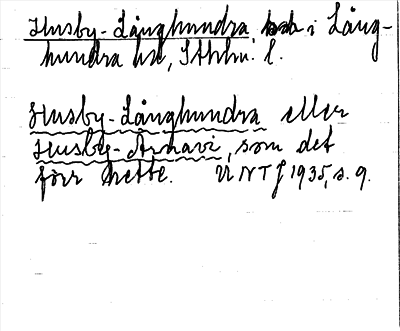 Husby-Långhundra sn i Lång-
hundra hd, Sthlm. l.
Husby-Långhundra eller
Husby-Arnavi, som det
förr hette. UNTJ 1935, s. 9.